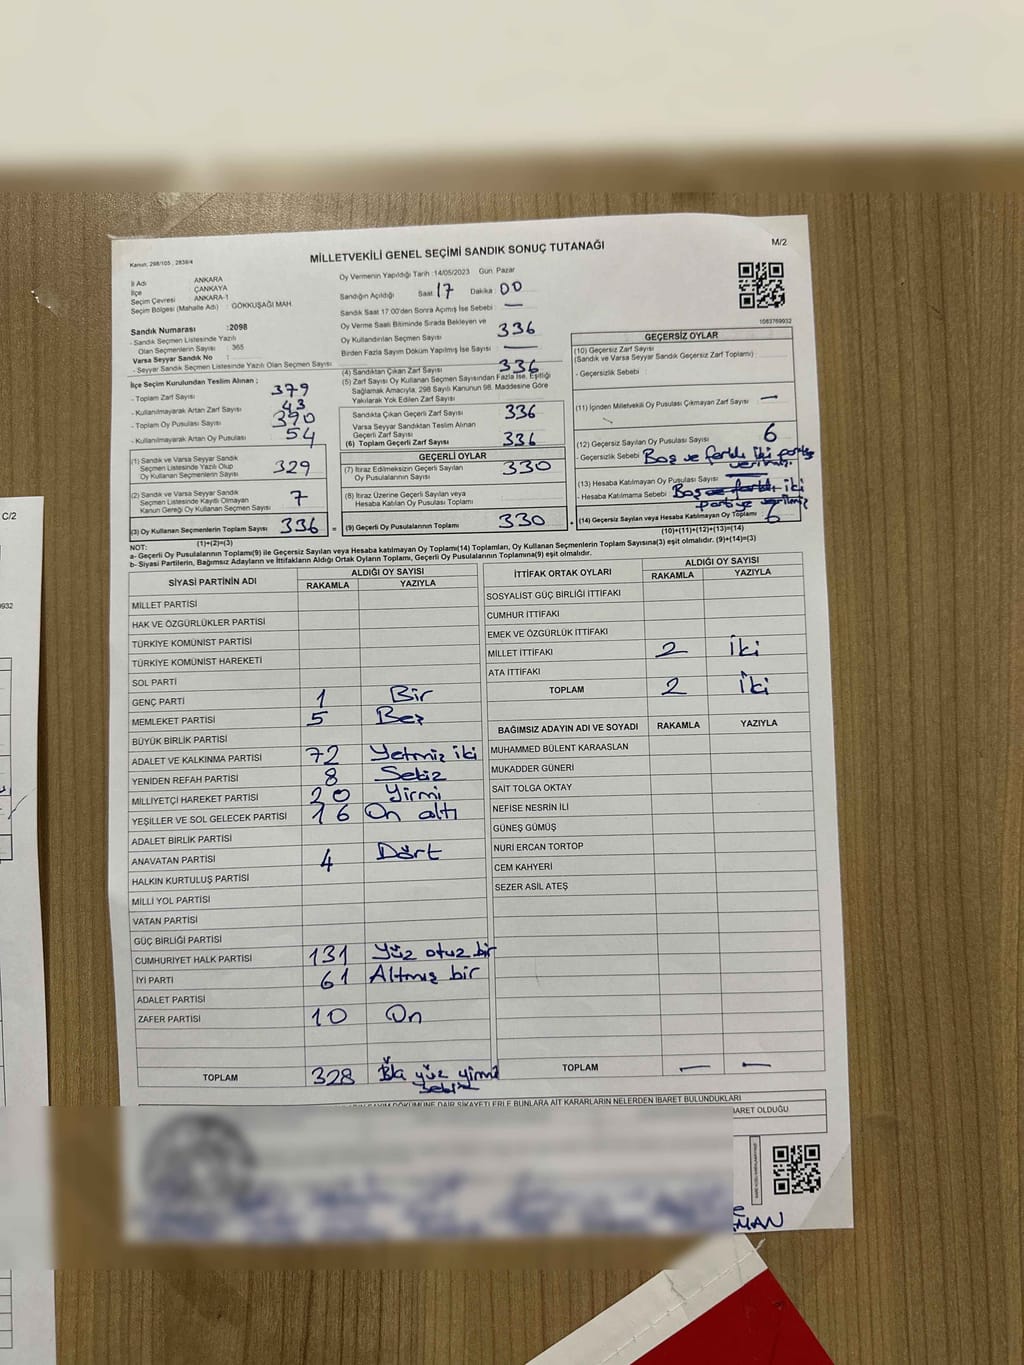 MİLLETVEKİLİ GENEL SEÇİMİ SANDIK SONUÇ TUTANAĞI
M/2
Kanun: 298/105 , 2839/4
İl Adı : ANKARA
İlçe : ÇANKAYA
Seçim Çevresi : ANKARA-1
Seçim Bölgesi (Mahalle Adı) : GÖKKUŞAĞI MAH.
Sandık Numarası :2098
- Sandık Seçmen Listesinde Yazılı
Olan Seçmenlerin Sayısı : 365
Varsa Seyyar Sandık No :
- Seyyar Sandık Seçmen Listesinde Yazılı Olan Seçmen Sayısı:
Oy Vermenin Yapıldığı Tarih :14/05/2023 Gün: Pazar
Sandığın Açıldığı Saat 17 Dakika: 00
Sandık Saat 17:00'den Sonra Açımış İse Sebebi : —
Oy Verme Saati Bitiminde Sırada Bekleyen ve
Oy Kullandırılan Seçmen Sayısı 336
Birden Fazla Sayım Döküm Yapılmış İse Sayısı : —
1083769932
İlçe Seçim Kurulundan Teslim Alınan ;
- Toplam Zarf Sayısı 379
- Kullanılmayarak Artan Zarf Sayısı 43
- Toplam Oy Pusulası Sayısı 390
- Kullanılmayarak Artan Oy Pusulası 54
(1) Sandık ve Varsa Seyyar Sandık
Seçmen Listesinde Yazılı Olup
Oy Kullanan Seçmenlerin Sayısı 329
(2) Sandık ve Varsa Seyyar Sandık
Seçmen Listesinde Kayıtlı Olmayan
Kanun Gereği Oy Kullanan Seçmen Sayısı 7
(3) Oy Kullanan Seçmenlerin Toplam Sayısı 336 =
(1)+(2)=(3)
(4) Sandıktan Çıkan Zarf Sayısı 336
(5) Zarf Sayısı Oy Kullanan Seçmen Sayısından Fazla İse, Eşitliği
Sağlamak Amacıyla, 298 Sayılı Kanunun 98. Maddesine Göre
Yakılarak Yok Edilen Zarf Sayısı :
Sandıkta Çıkan Geçerli Zarf Sayısı 336
Varsa Seyyar Sandıktan Teslim Alınan
Geçerli Zarf Sayısı
(6) Toplam Geçerli Zarf Sayısı 336
GEÇERLİ OYLAR
(7) İtiraz Edilmeksizin Geçerli Sayılan
Oy Pusulasının Sayısı 330
(8) İtiraz Üzerine Geçerli Sayılan veya
Hesaba Katılan Oy Pusulası Toplamı
(9) Geçerli Oy Pusulalarının Toplamı 330 +
GEÇERSİZ OYLAR
(10) Geçersiz Zarf Sayısı
(Sandık ve Varsa Seyyar Sandık Geçersiz Zarf Toplamı) :
- Geçersizlik Sebebi :
(11) İçinden Milletvekili Oy Pusulası Çıkmayan Zarf Sayısı —
(12) Geçersiz Sayılan Oy Pusulası Sayısı 6
- Geçersizlik Sebebi Boş ve farklı iki partiye
verilmiş.
(13) Hesaba Katılmayan Oy Pusulası Sayısı
- Hesaba Katılmama Sebebi Boş ve farklı iki
partiye verilmiş
(14) Geçersiz Sayılan veya Hesaba Katılmayan Oy Toplamı 6
(10)+(11)+(12)+(13)=(14)
NOT:
a- Geçerli Oy Pusulalarının Toplamı(9) ile Geçersiz Sayılan veya Hesaba katılmayan Oy Toplamı(14) Toplamları, Oy Kullanan Seçmenlerin Toplam Sayısına(3) eşit olmalıdır. (9)+(14)=(3)
b- Siyasi Partilerin, Bağımsız Adayların ve İttifakların Aldığı Ortak Oyların Toplamı, Geçerli Oy Pusulalarının Toplamına(9) eşit olmalıdır.
SİYASİ PARTİNİN ADI ALDIĞI OY SAYISI
RAKAMLA YAZIYLA
MİLLET PARTİSİ
HAK VE ÖZGÜRLÜKLER PARTİSİ
TÜRKİYE KOMÜNİST PARTİSİ
TÜRKİYE KOMÜNİST HAREKETİ
SOL PARTİ
GENÇ PARTİ 1 Bir
MEMLEKET PARTİSİ 5 Beş
BÜYÜK BİRLİK PARTİSİ
ADALET VE KALKINMA PARTİSİ 72 Yetmiş iki
YENİDEN REFAH PARTİSİ 8 Sekiz
MİLLİYETÇİ HAREKET PARTİSİ 20 Yirmi
YEŞİLLER VE SOL GELECEK PARTİSİ 16 On altı
ADALET BİRLİK PARTİSİ
ANAVATAN PARTİSİ 4 Dört
HALKIN KURTULUŞ PARTİSİ
MİLLİ YOL PARTİSİ
VATAN PARTİSİ
GÜÇ BİRLİĞİ PARTİSİ
CUMHURİYET HALK PARTİSİ 131 Yüz otuz bir
İYİ PARTİ 61 Altmış bir
ADALET PARTİSİ
ZAFER PARTİSİ 10 On
TOPLAM 328 yüz yirmi
sekiz
İTTİFAK ORTAK OYLARI ALDIĞI OY SAYISI
RAKAMLA YAZIYLA
SOSYALİST GÜÇ BİRLİĞİ İTTİFAKI
CUMHUR İTTİFAKI
EMEK VE ÖZGÜRLÜK İTTİFAKI
MİLLET İTTİFAKI 2 İki
ATA İTTİFAKI
TOPLAM 2 İki
BAĞIMSIZ ADAYIN ADI VE SOYADI RAKAMLA YAZIYLA
MUHAMMED BÜLENT KARAASLAN
MUKADDER GÜNERİ
SAİT TOLGA OKTAY
NEFİSE NESRİN İLİ
GÜNEŞ GÜMÜŞ
NURİ ERCAN TORTOP
CEM KAHYERİ
SEZER ASİL ATEŞ
TOPLAM — —
SAYIM DÖKÜMÜNE DAİR ŞİKAYETLERLE BUNLARA AİT KARARLARIN NELERDEN İBARET BULUNDUKLARI
BARET OLDUĞU
MAN
C/2
932